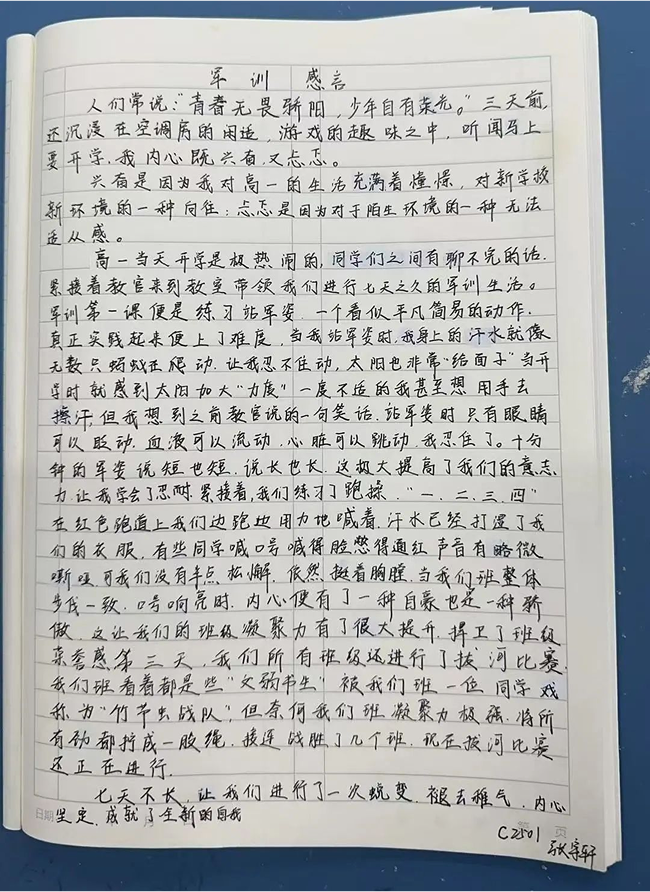 军训 感言
人们常说:"青春无畏骄阳,少年自有荣光。"三天前,
还沉浸在空调房的闲适,游戏的趣味之中,听闻马上
要开学,我内心既兴奋又忐忑。
兴奋是因为我对高一的生活充满着憧憬,对新学校
新环境的一种向往;忐忑是因为对于陌生环境的一种无法
适从感。
高一当天开学是极热闹的,同学们之间有聊不完的话.
紧接着教官来到教室带领我们进行七天之久的军训生活。
军训第一课便是练习站军姿.一个看似平凡简易的动作.
真正实践起来便上了难度,当我站军姿时,我身上的汗水就像
无数只蚂蚁在爬动.让我忍不住动,太阳也非常"给面子"当开
导时就感到太阳加大"力度"一度不适的我甚至想用手去
擦汗,但我想到之前教官说的一句笑话.站军姿时只有眼睛
可以眨动.血液可以流动.心脏可以跳动.我忍住了。十分
钟的军姿说短也短.说长也长.这极大提高了我们的意志
力.让我学会了忍耐.紧接着,我们练习了跑操."一.二.三.四"
在红色跑道上我们边跑边用力地喊着.汗水已经打湿了我
们的衣服.有些同学喊口号喊得脸憋得通红声音有略微
嘶哑可我们没有半点松懈.依然挺着胸膛.当我们班整体
步伐一致.口号响亮时.内心便有了一种自豪也是一种骄
傲.这让我们的班级凝聚力有了很大提升.捍卫了班级
荣誉感第三天,我们所有班级还进行了拔河比赛.
我们班看着都是些"文弱书生"被我们班一位同学戏
称为"竹节虫战队",但奈何我们班凝聚力极强.将所
有劲都拧成一股绳.接连战胜了几个班.现在拔河比赛
还正在进行.
七天不长,让我们进行了一次蜕变.褪去稚气.内心
日期 坚定.成就了全新的自我
C2501 页
张宗轩